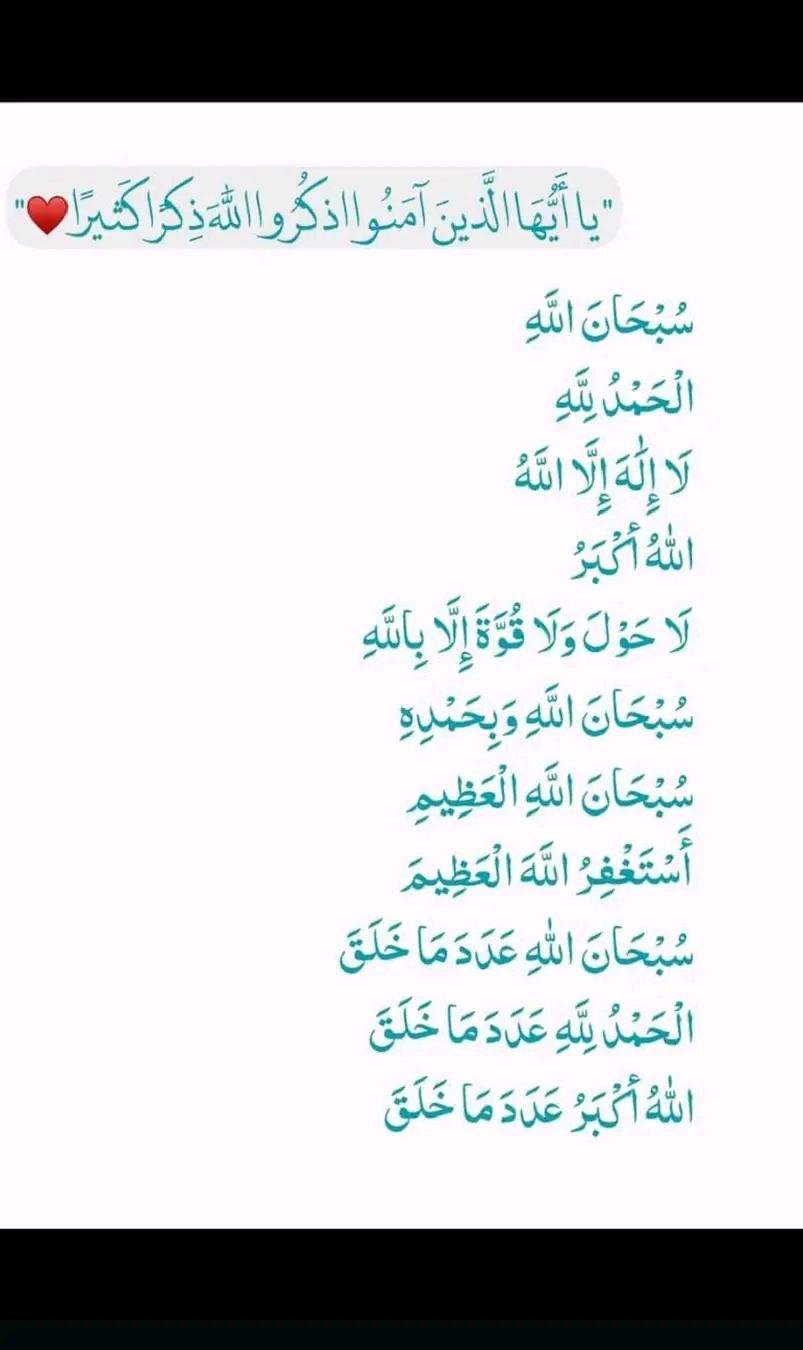 "يا أَيُّهَا الَّذينَ آمَنُوا اذكُرُوا اللهَ ذِكرًا كَثيرًا❤️"
سُبْحَانَ اللَّهِ
الْحَمْدُ لِلَّهِ
لَا إِلَٰهَ إِلَّا اللَّهُ
اللهُ أَكْبَرُ
لَا حَوْلَ وَلَا قُوَّةَ إِلَّا بِاللَّهِ
سُبْحَانَ اللَّهِ وَبِحَمْدِهِ
سُبْحَانَ اللَّهِ الْعَظِيمِ
أَسْتَغْفِرُ اللَّهَ الْعَظِيمَ
سُبْحَانَ اللهِ عَدَدَ مَا خَلَقَ
الْحَمْدُ لِلَّهِ عَدَدَ مَا خَلَقَ
اللهُ أَكْبَرُ عَدَدَ مَا خَلَقَ